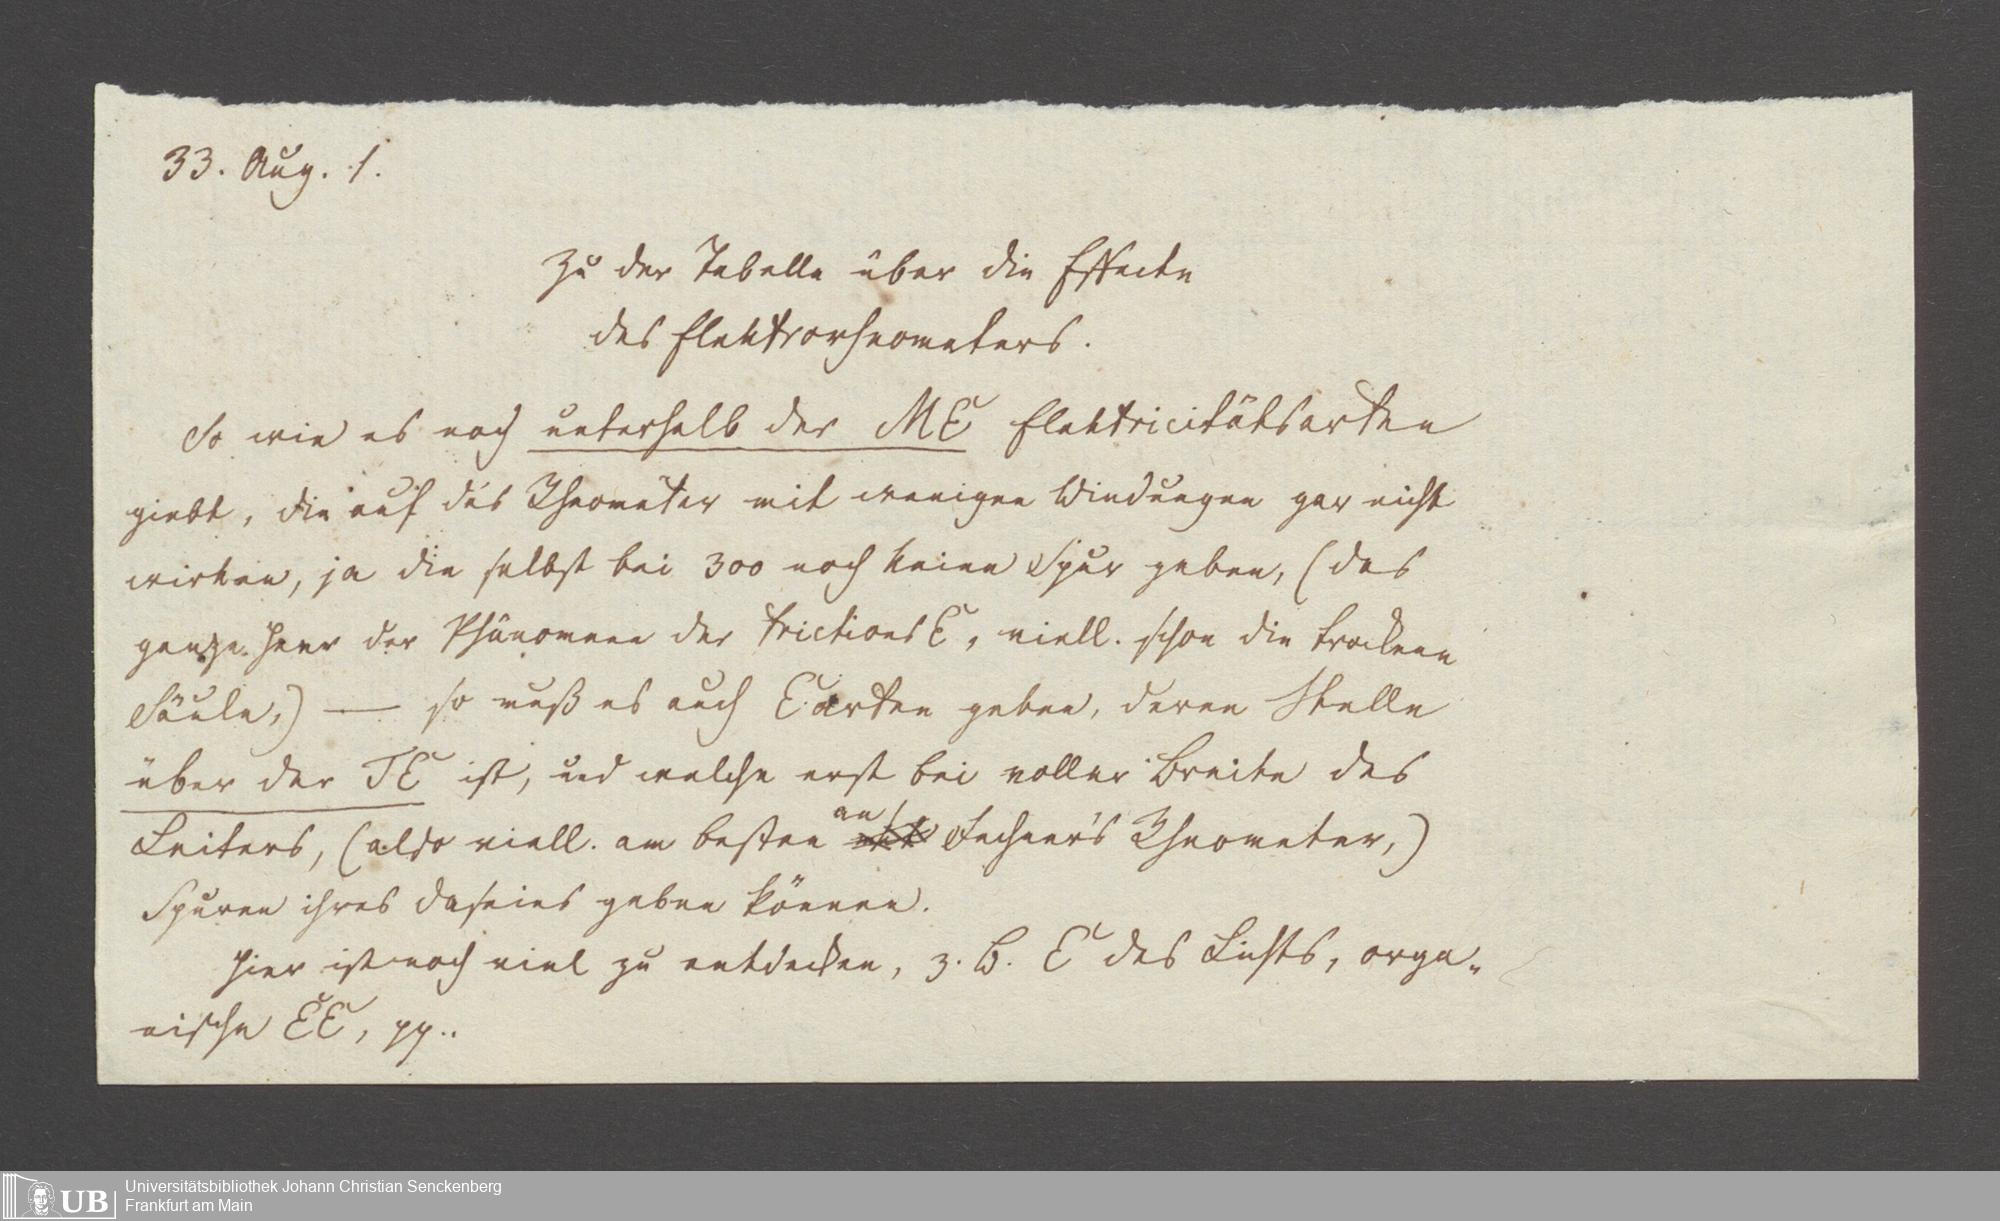 33. Aug. 1.
Zu der Tabelle über die Effecte
des Elektrorheometers.
So wie es noch unterhalb der ME Elektricitätsarten
giebt, die auf das Rheometer mit wenigen Windungen gar nicht
wirken, ja die selbst bei 300 noch keine Spur geben, (das
ganze Heer der Phänomene der FrictionsE, viell. schon die trockene
Säule,) — so muß es auch Earten geben, deren Stelle
über der TE ist, und welche erst bei voller Breite des
Leiters, (also viell. am besten an Fechner's Rheometer,)
Spuren ihres Daseins geben können.
Hier ist noch viel zu entdecken, z. B. E des Lichts, orga-
nische EE, pp..
UB
Universitätsbibliothek Johann Christian Senckenberg
Frankfurt am Main